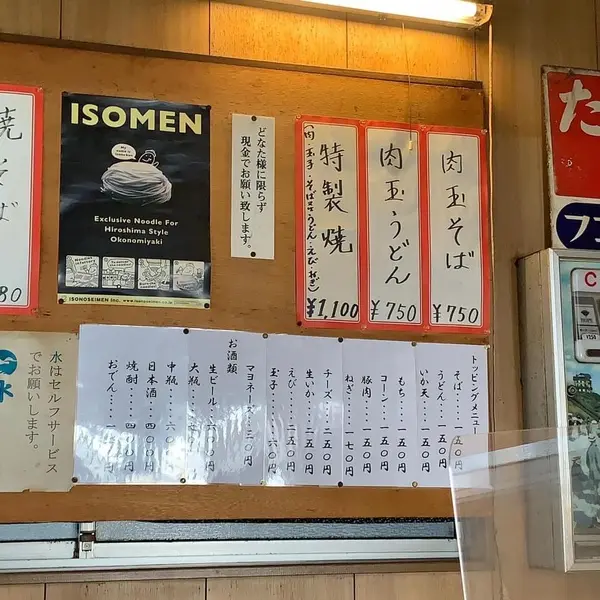 ISOMEN
Exclusive Noodle For
Hiroshima Style
Okonomiyaki
ISONOSEIMEN Inc.
どなた様に限らず
現金でお願い致します。
肉玉そば
¥750
肉玉うどん
¥750
特製焼
(肉・玉子・そば又はうどん・えび・ねぎ)
¥1,100
焼そば
80
た
フ
トッピングメニュー
そば・・・・一五〇円
うどん・・・一五〇円
いか天・・・一五〇円
もち・・・・一五〇円
コーン・・・一五〇円
豚肉・・・・一五〇円
ねぎ・・・・一七〇円
チーズ・・・二五〇円
生いか・・・二五〇円
えび・・・・二五〇円
玉子・・・・六〇円
マヨネーズ・・二〇円
お酒類
生ビール・・六〇〇円
大瓶
中瓶
日本酒・・・四〇〇円
焼酎・・・・四〇〇円
おでん
水はセルフサービス
でお願いします。
水
C